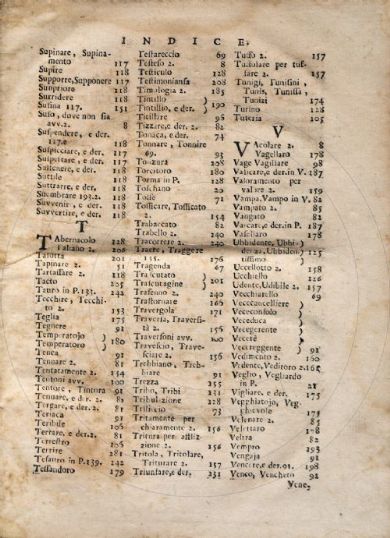 INDICE.
Supinare, Supina-
mento 117
Supire 118
Supporre, Supponere 117
Surridere 118
Susina 117. 151
Suso, dove non sia
avv. 2. 8
Suspendere, e der.
Suspicare, e der. 118
Sustenere, e der. 118
Suttile 118
Suttrarre, e der. 118
Suvvenir, e der. 118
Suvvertire, e der. 118
T
Tabernacolo 128
Tafano 2. 206
Tapinare 2. 51
Tartassare 2. 118
Tacto 205
Tauro in P. 131. 242
Tecchire, Tecchi-
to 2. 153
Teglia 175
Tegnere 91
Temporatojo )
Temporatoro ) 180
Tenca 91
Tenuare 2. 81
Tentatamente 2. 154
Tentoni avv. 100
Tentura, Tintura 91
Tenuare, e dir. 2. 81
Tergare, e der. 2. 81
Teriaca 91
Teribile 106
Terrare, e der. 2. 81
Terrestro 106
Terrire 281
Tesauro in P. 139. 242
Tessandoro 179
Testareccio 69
Testeso 2. 8
Testiculo 128
Testimonianza 208
Timologia 2. 185
Tinello, e der. )
Tintillio, e der. ) 190
Titillare 96
Tizzare, e der. 2. 82
Tonica, e der. 74
Tonnare, Tonnire
69. 93
Tonzura 208
Torcitoro 180
Torma in P. 128
Toschano 20
Tosse 71
Tossicare, Tossicato
2. 154
Trabarcato 82
Trabello 2. 240
Tracorrere 2. 240
Traere, Traggere
135. 176
Tragenda 67
Tralcutato )
Trascutagine ) 201
Trasenno 2. 240
Trasformate 160
Travergola 171
Traveria, Traversi-
tà 2. 156
Traversioni avv. 100
Travescio, Trave-
sciare 2. 156
Trebbiano, Treb-
biare 91
Trezza 255
Tribo, Tribi 231
Tribulazione 228
Trilliccio 73
Tritamente per
chiaramente 2. 241
Tritura per affli-
zione 2. 156
Tritola, Tritolare,
Triturare 2. 157
Triunfare, e der. 231
Tuffo 2. 157
Tuffolare per tuf-
fare 2. 157
Tunigi, Tunisini,
Tunis, Tunissa,
Tunizi 174
Turino 128
Tuteria 105
V
VAcolare 2. 8
Vagellara 178
Vage Vagillare 98
Valicare, e der. in V. 187
Valoramento per
valore 2. 159
Vampa. Vampo in V. 82
Vamputo 2. 85
Vangato 82
Varcare, e der. in P. 187
Vasellaro 178
Ubbidente, Ubbi- )
der 2. Ubbiden- ) 125
tissimo )
Uccellotto 2. 158
Ucchiello 126
Udente, Udibile 2. 157
Vecchiarello 69
Vececancelliere )
Vececonsolo )
Veceduca )
Vecegerente )
Vecerè )
Vecereggente ) 91
Vedimento 2. 160
Vedente, Veditoro 2. 16
Veglio, Vegliardo
in P. 21
Vigliare, e der. 175
Vegghiatojo, Veg-
ghievole 175
Velenare 2. 85
Velettaro 178
Velara 82
Vempro 193
Vengaja 91
Venere, e der. 91. 198
Venco, Venchero 92
Vene,